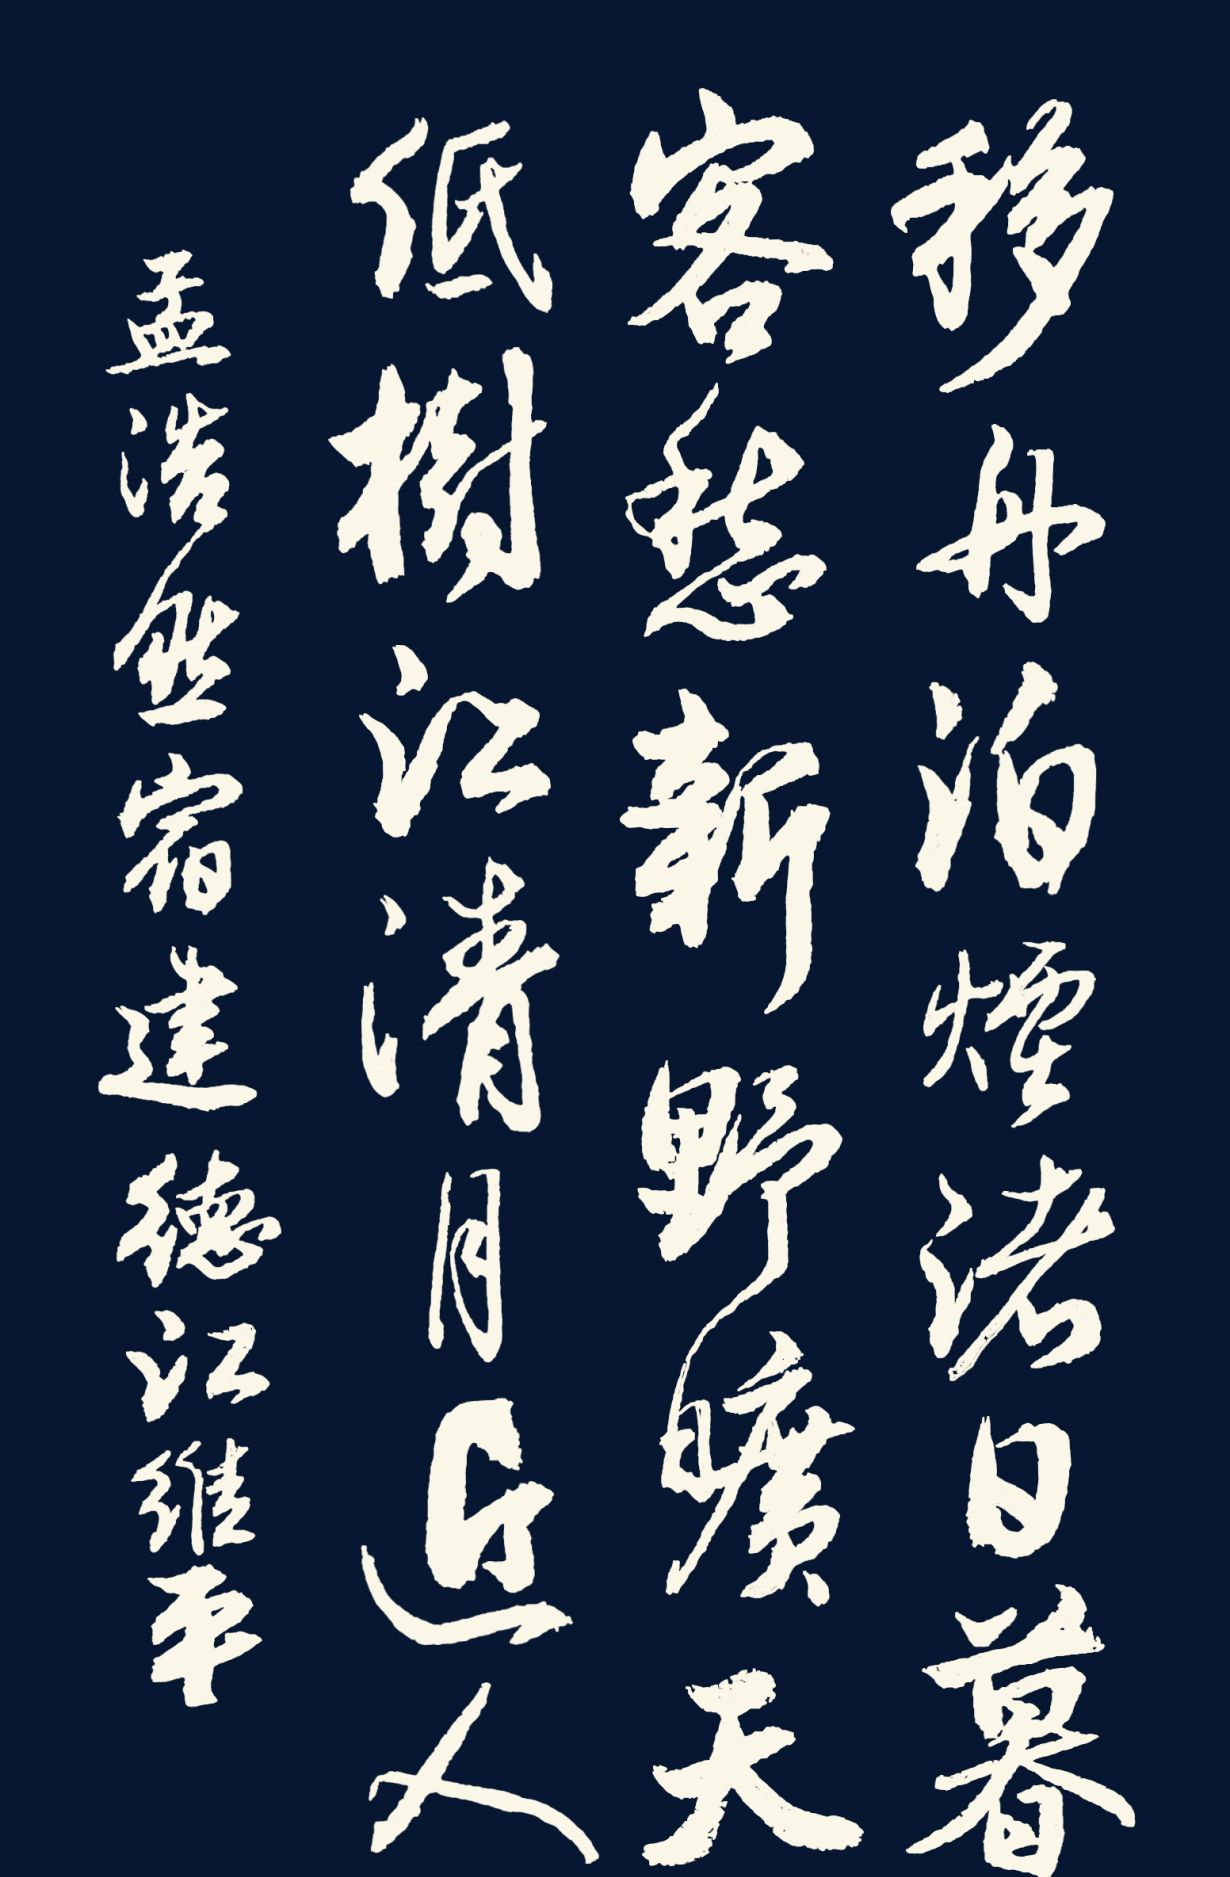 移舟泊煙渚日暮
客愁新野曠天
低樹江清月近人
孟浩然宿建德江維平